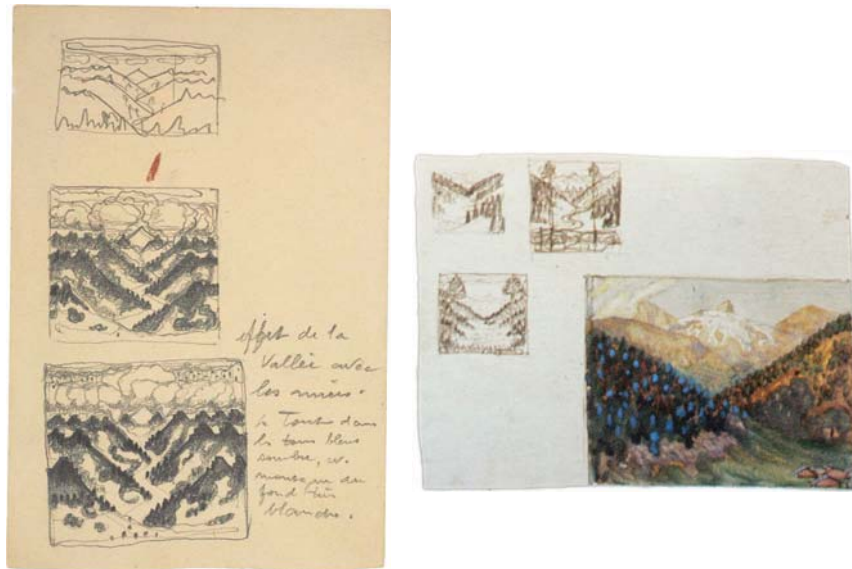 effet de la
Vallée avec
les
Tout dans
les tons bleus
sombre,
fond très
blanche.